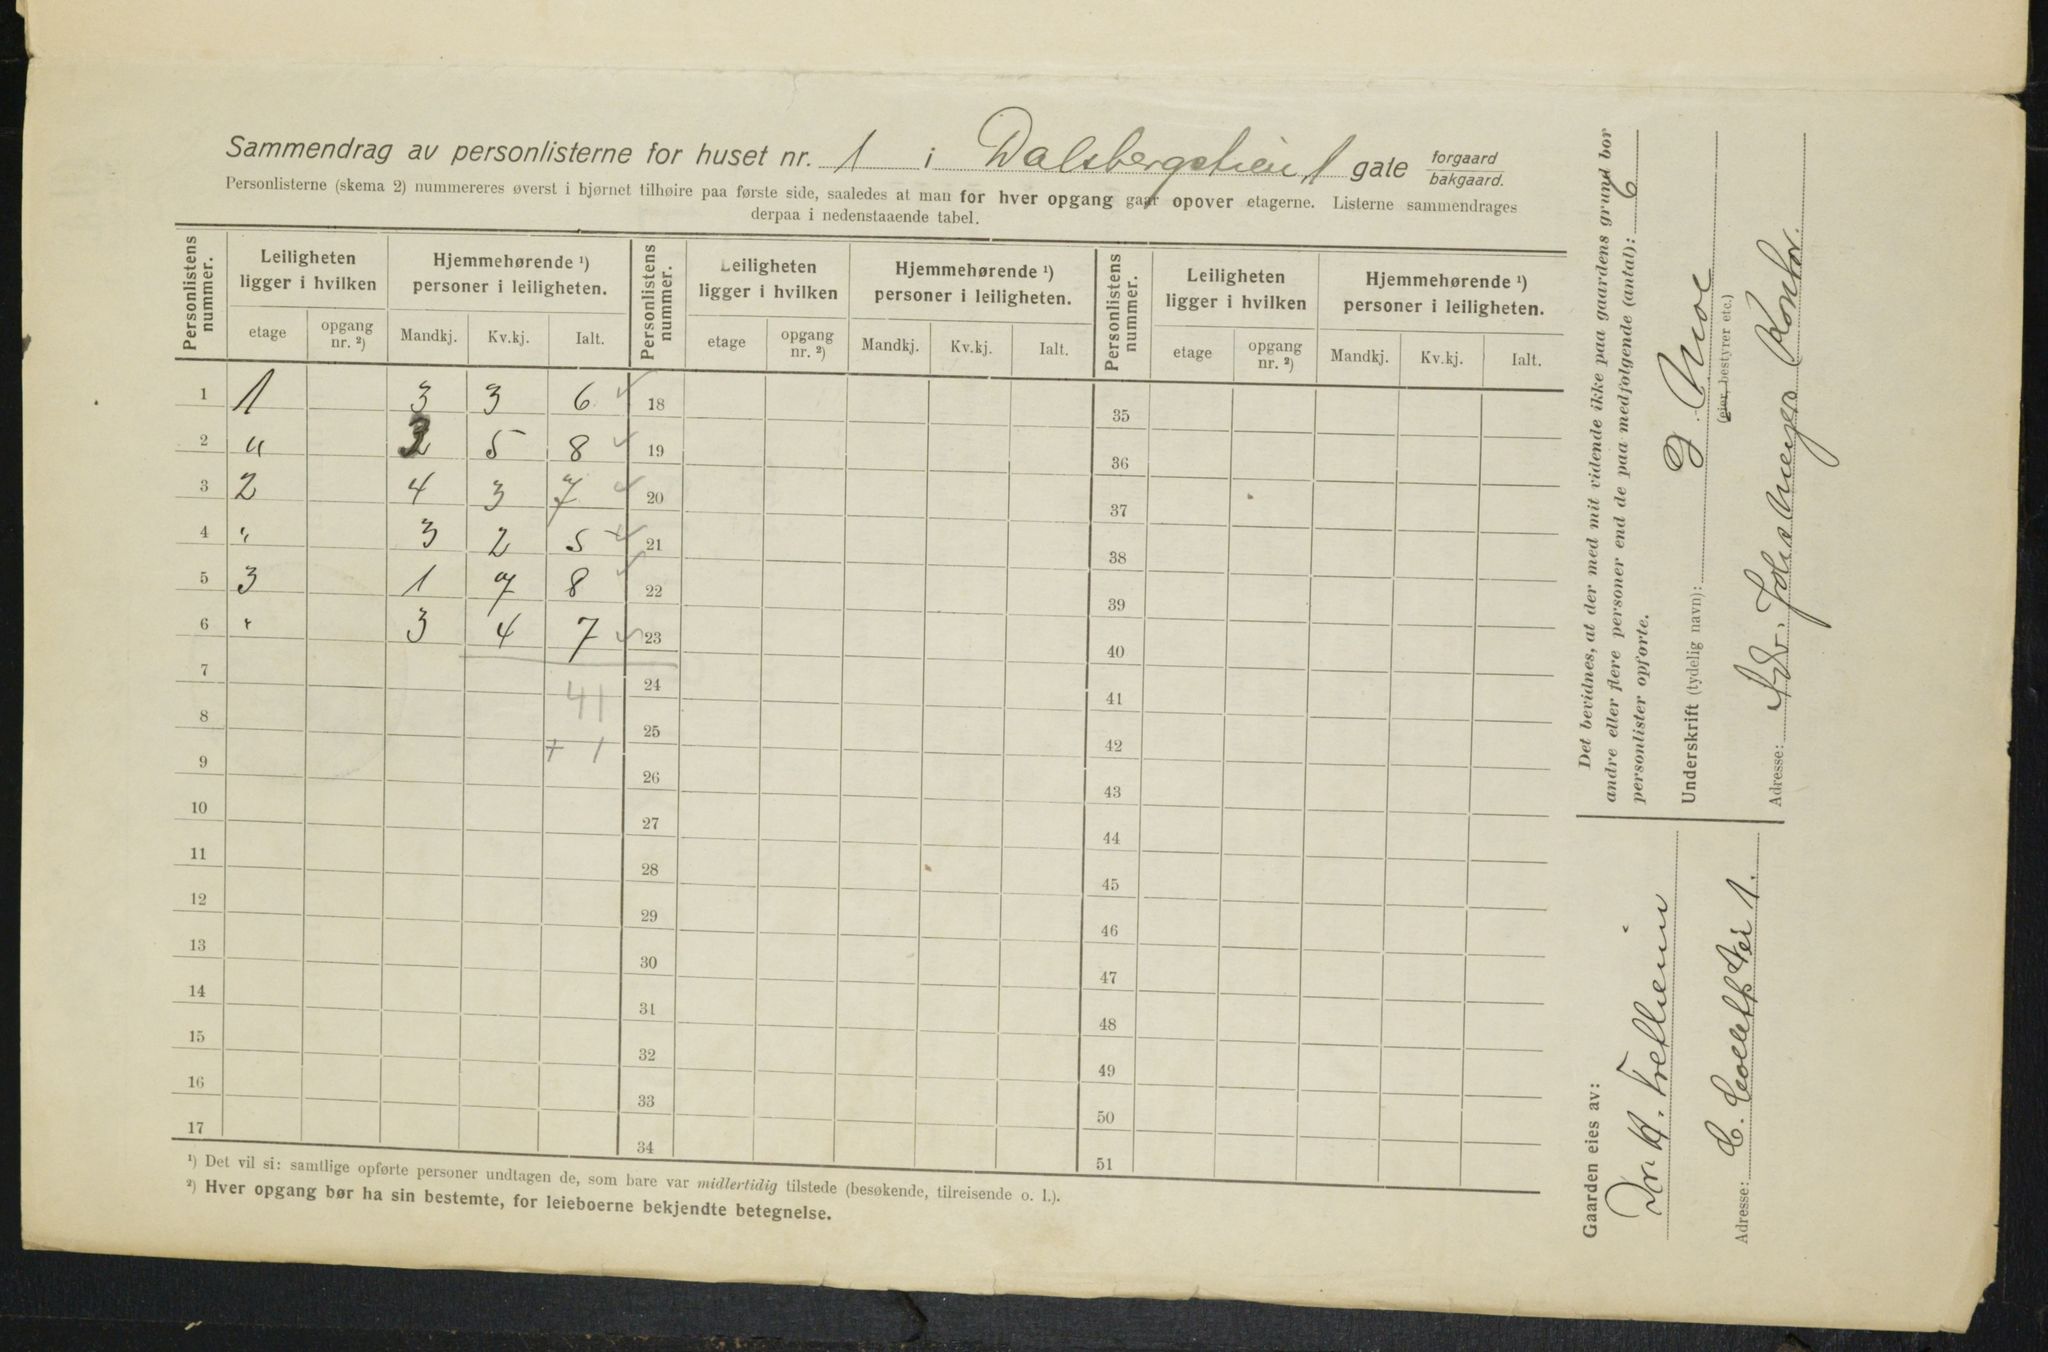 Sammendrag av personlisterne for huset nr. 1 i Dalsbergstien 1 gate forgaard bakgaard.
Personlisterne (skema 2) nummereres øverst i hjørnet tilhøire paa første side, saaledes at man for hver opgang gaar opover etagerne. Listerne sammendrages
derpaa i nedenstaaende tabel.
Personlistens nummer. Leiligheten ligger i hvilken Hjemmehørende ¹) personer i leiligheten. Personlistens nummer. Leiligheten ligger i hvilken Hjemmehørende ¹) personer i leiligheten. Personlistens nummer. Leiligheten ligger i hvilken Hjemmehørende ¹) personer i leiligheten.
etage opgang nr. ²) Mandkj. Kv.kj. Ialt. etage opgang nr. ²) Mandkj. Kv.kj. Ialt. etage opgang nr. ²) Mandkj. Kv.kj. Ialt.
1 1 3 3 6 18 35
2 " 3 5 8 19 36
3 2 4 3 7 20 37
4 " 3 2 5 21 38
5 3 1 7 8 22 39
6 " 3 4 7 23 40
7 41 24 41
8 + 1 25 42
9 26 43
10 27 44
11 28 45
12 29 46
13 30 47
14 31 48
15 32 49
16 33 50
17 34 51
¹) Det vil si: samtlige opførte personer undtagen de, som bare var midlertidig tilstede (besøkende, tilreisende o. l.).
²) Hver opgang bør ha sin bestemte, for leieboerne bekjendte betegnelse.
Det bevidnes, at der med mit vidende ikke paa gaardens grund bor
andre eller flere personer end de paa medfølgende (antal): 6
personlister opførte.
Underskrift (tydelig navn): J. Moe
(eier, bestyrer etc.)
Adresse: Adv. Johs Meyers Kontor.
Gaarden eies av:
H.
Adresse: C. Colletts 1.